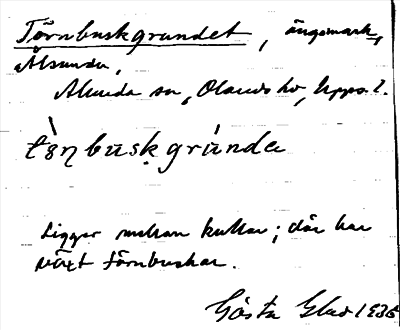 Törnbuskgrundet, ängsmark,
Alsunda,
Alunda sn, Olands hd, Upps. l.
tö̀ṇbuskgrúnda
Ligger mellan kullar; där har
växt törnbuskar.
Gösta Glad 1935